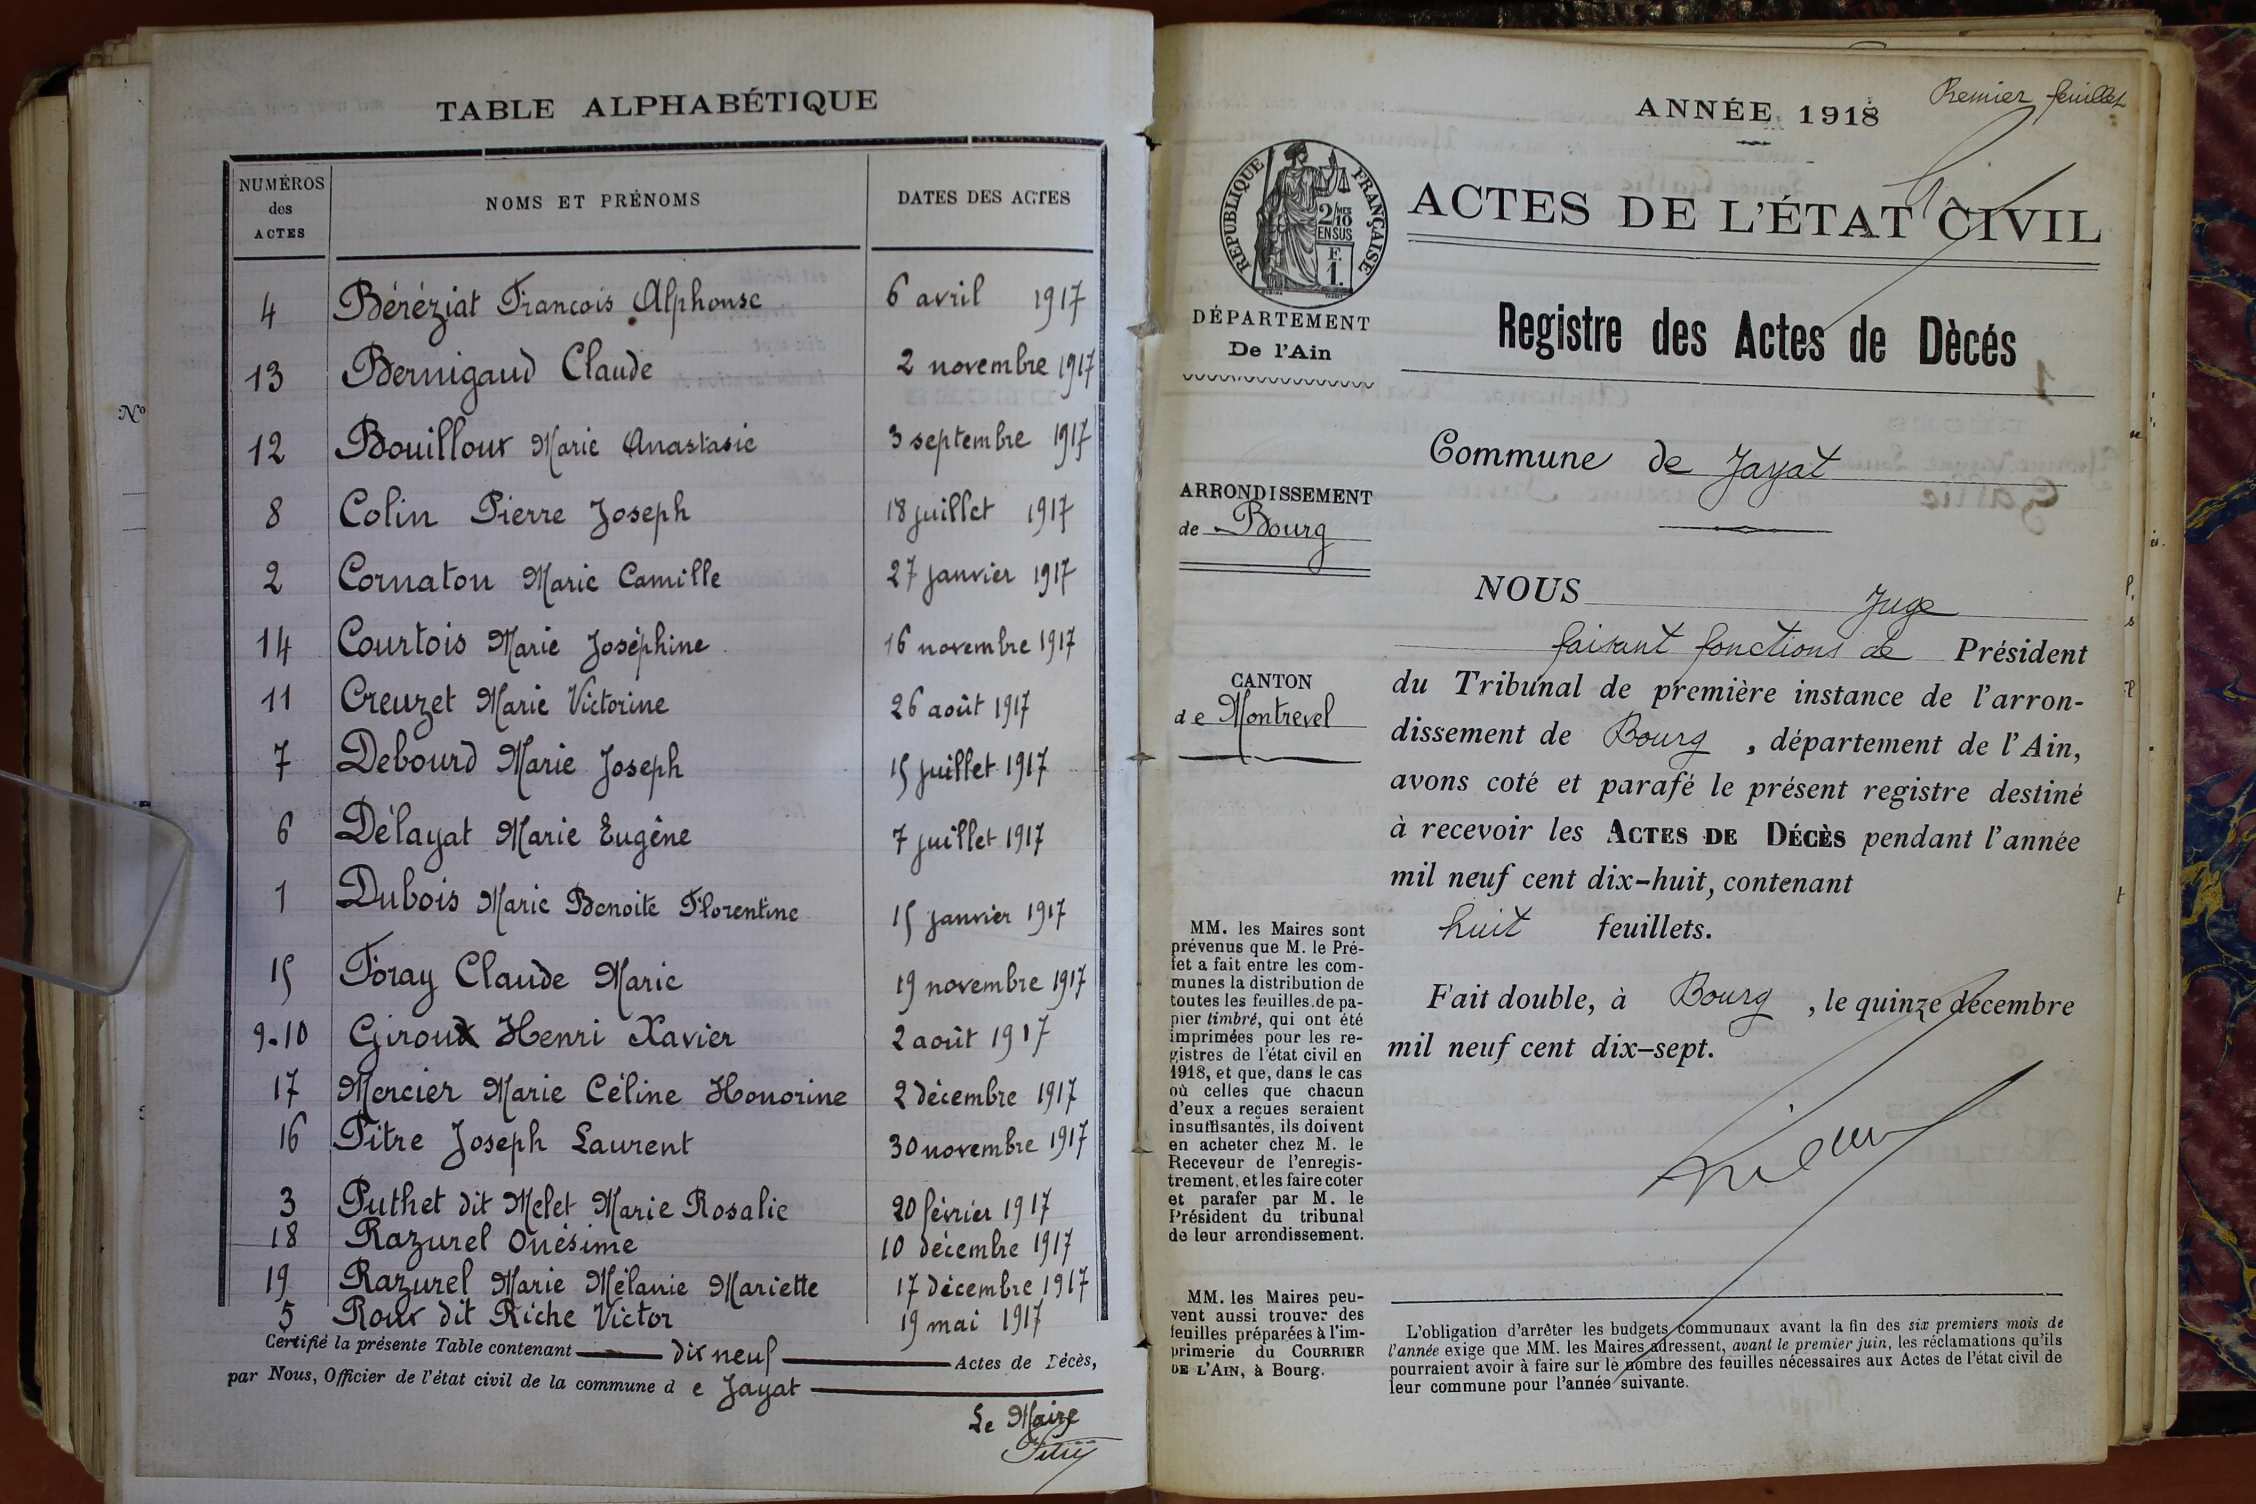 TABLE ALPHABÉTIQUE
NUMÉROS des ACTES
NOMS ET PRÉNOMS
DATES DES ACTES
4 Béréziat François Alphonse 6 avril 1917
13 Bernigaud Claude 2 novembre 1917
12 Bouilloux Marie Anastasie 3 septembre 1917
8 Colin Pierre Joseph 18 juillet 1917
2 Cornaton Marie Camille 27 janvier 1917
14 Courtois Marie Joséphine 16 novembre 1917
11 Creuzet Marie Victorine 26 août 1917
7 Debourd Marie Joseph 15 juillet 1917
6 Délayat Marie Eugène 7 juillet 1917
1 Dubois Marie Benoite Florentine 15 janvier 1917
15 Foray Claude Marie 19 novembre 1917
9-10 Giroux Henri Xavier 2 août 1917
17 Mercier Marie Céline Honorine 2 décembre 1917
16 Pitre Joseph Laurent 30 novembre 1917
3 Puthet dit Melet Marie Rosalie 20 février 1917
18 Razurel Onésime 10 décembre 1917
19 Razurel Marie Mélanie Mariette 17 décembre 1917
5 Roux dit Riche Victor 19 mai 1917
Certifié la présente Table contenant dix neuf Actes de Décès,
par Nous, Officier de l'état civil de la commune d e Jayat
Le Maire
N°
Premier feuillet
ANNÉE 1918
RÉPUBLIQUE FRANÇAISE
2/10 MES
EN SUS
F.
1.
ACTES DE L'ÉTAT CIVIL
DÉPARTEMENT
De l'Ain
Registre des Actes de Dècés
Commune de Jayat
ARRONDISSEMENT
de Bourg
CANTON
de Montrevel
NOUS Juge
faisant fonctions de Président
du Tribunal de première instance de l'arron-
dissement de Bourg, département de l'Ain,
avons coté et parafé le présent registre destiné
à recevoir les ACTES DE DÉCÈS pendant l'année
mil neuf cent dix-huit, contenant
huit feuillets.
Fait double, à Bourg, le quinze décembre
mil neuf cent dix-sept.
MM. les Maires sont
prévenus que M. le Pré-
fet a fait entre les com-
munes la distribution de
toutes les feuilles de pa-
pier timbré, qui ont été
imprimées pour les re-
gistres de l'état civil en
1918, et que, dans le cas
où celles que chacun
d'eux a reçues seraient
insuffisantes, ils doivent
en acheter chez M. le
Receveur de l'enregis-
trement, et les faire coter
et parafer par M. le
Président du tribunal
de leur arrondissement.
MM. les Maires peu-
vent aussi trouver des
feuilles préparées à l'im-
primerie du COURRIER
DE L'AIN, à Bourg.
L'obligation d'arrêter les budgets communaux avant la fin des six premiers mois de
l'année exige que MM. les Maires adressent, avant le premier juin, les réclamations qu'ils
pourraient avoir à faire sur le nombre des feuilles nécessaires aux Actes de l'état civil de
leur commune pour l'année suivante.